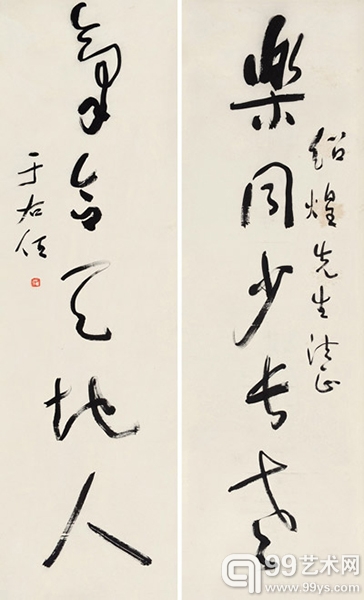 樂同少長老
紹煌先生法正
氣合天地人
于右任
99艺术网
www.99ys.com